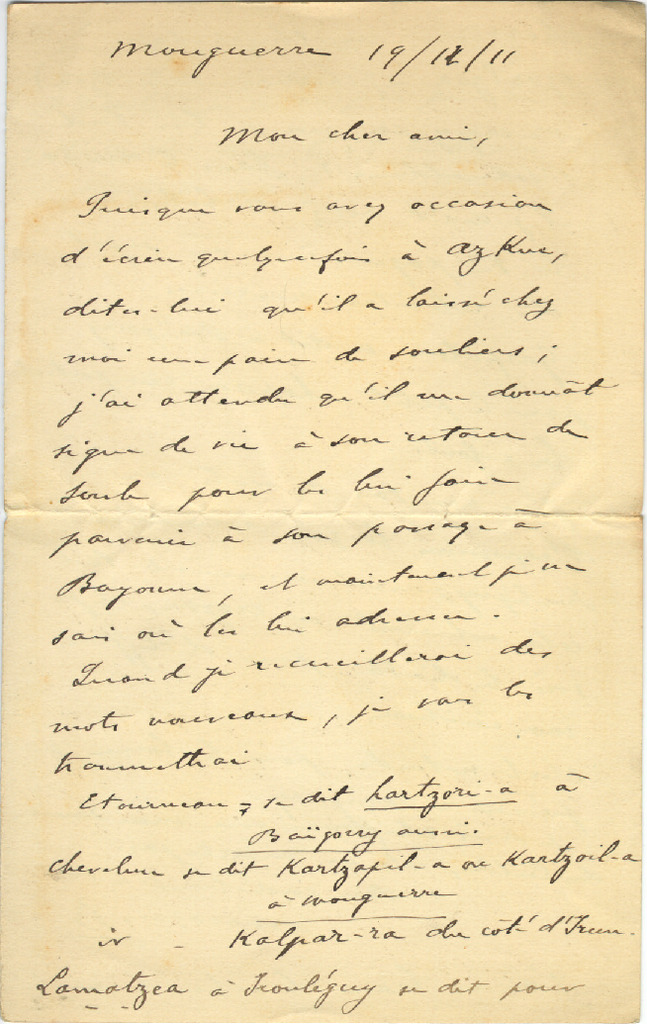 Mouguerre 19/12/11
Mon cher ami,
Puisque vous avez occasion
d'écrire quelquefois à Azkue,
dites-lui qu'il a laissé chez
moi une paire de souliers ;
j'ai attendu qu'il me donnât
signe de vie à son retour de
Soule pour les lui faire
parvenir à son passage à
Bayonne, et maintenant je ne
sais où les lui adresser.
Quand je recueillerai des
mots nouveaux, je vous les
transmettrai
Etourneau = se dit hartzori-a à
Baïgorry aussi.
chevelure se dit Kartzapil-a ou Kartzoil-a
à Mouguerre
Kalpar-ra du coté d'Irun.
Lamatzea à Irouléguy se dit pour